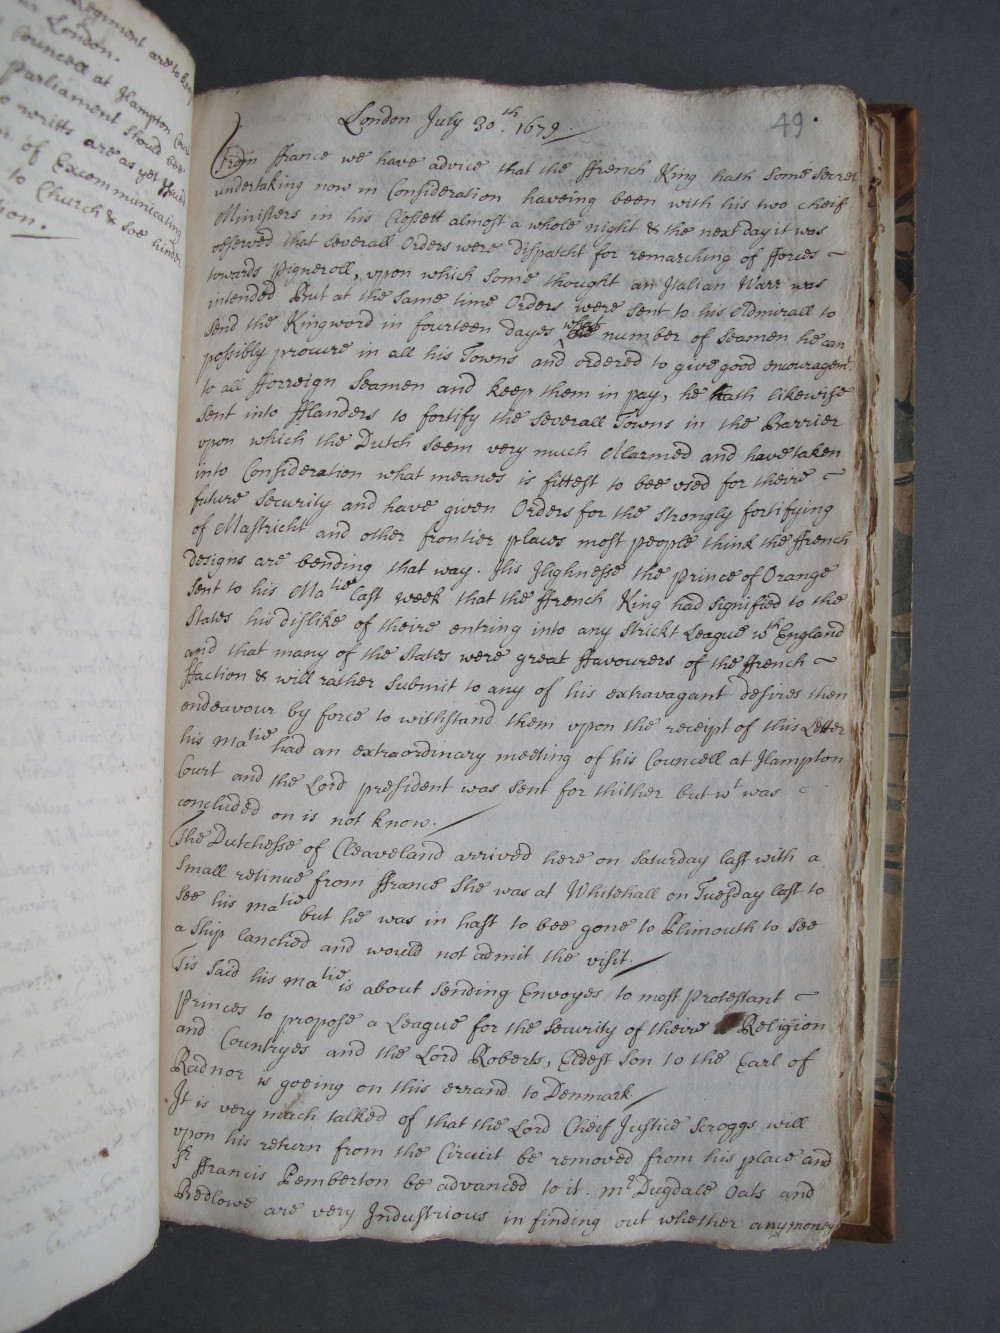 Regiment are to bee
London.
Councell at Hampton Court
Parliament should bee
writts are as yet issued
of Excommunicating
to Church & soe hinder
tion.
49
London July 30th. 1679.
From ffrance we have advice that the ffrench King hath some secret
undertaking now in Consideration haveing been with his two cheif
Ministers in his Clossett almost a whole night & the next day it was
observed that severall Orders were dispatcht for remarching of fforces
towards Pigneroll, upon which some thought an Italian Warr was
intended But at the same time Orders were sent to his Admirall to
send the King word in fourteen dayes what number of Seamen he can
possibly procure in all his Towns and ordered to give good encouragemt.
to all fforreign Seamen and keep them in pay, he hath likewise
sent into fflanders to fortify the severall Towns in the Barrier
upon which the Dutch seem very much Allarmed and have taken
into Consideration what meanes is fittest to bee used for theire
future Security and have given Orders for the strongly fortifying
of Mastricht and other frontier places most people think the ffrench
designs are bending that way. His Highnesse the prince of Orange
sent to his Matie last week that the ffrench King had signified to the
States his dislike of theire entring into any strickt League wth England
and that many of the States were great ffavourers of the ffrench
ffaction & will rather submit to any of his extravagant desires then
endeavour by force to withstand them upon the receipt of this Letter
his Matie had an extraordinary meeting of his Councell at Hampton
Court and the Lord president was sent for thither but wt was
concluded on is not know.
The Dutchesse of Cleaveland arrived here on saturday last with a
small retinue from ffrance she was at Whitehall on Tuesday last to
see his Matie but he was in hast to bee gone to Plimouth to see
a ship lanched and would not admit the visit.
Tis said his Matie is about sending Envoyes to most Protestant
Princes to propose a League for the security of theire Religion
and Countryes and the Lord Roberts, Eldest son to the Earl of
Radnor is goeing on this errand to Denmark.
It is very much talked of that the Lord Cheif Justice Scroggs will
upon his return from the Circuit be removed from his place and
Sr ffrancis Pemberton be advanced to it. mr. Dugdale Oats and
Bedlowe are very Industrious in finding out whether any money